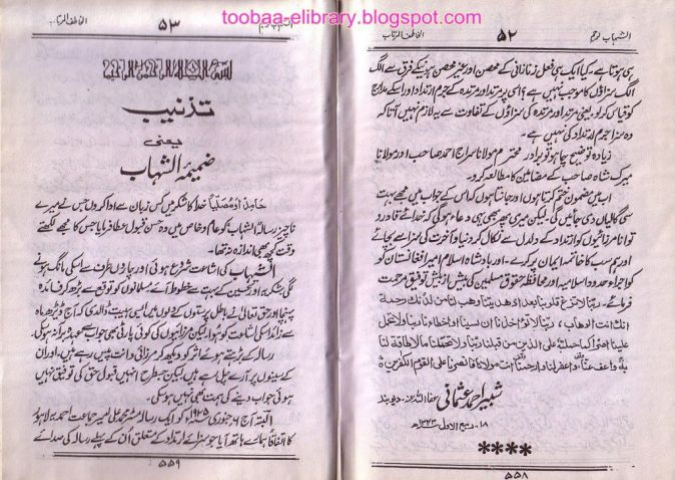 toobaa-elibrary.blogspot.com
الشہاب لرجم
۵۲
الخاطف المرتاب
ہی ہوتا ہے۔ کیا ایک ہی فعل زنا زانی کے محصن اور غیر محصن ہونیکے فرق سے الگ
الگ سزاؤں کا موجب نہیں ہے؟ اسی پر مرتد اور مرتدہ کے جرم ارتداد اور اسکے مدارج
کو قیاس کر لو۔ یعنی مرتد اور مرتدہ کی سزاؤں کے تفاوت سے یہ لازم نہیں آتا کہ
وہ سزا جرم ارتداد کی نہیں ہے۔
زیادہ توضیح چاہو تو برادر محترم مولانا سراج احمد صاحب اور مولانا
میرک شاہ صاحب کے مضامین کا مطالعہ کرو۔
اب میں مضمون ختم کرتا ہوں اور جانتا ہوں کہ اس کے جواب میں مجھے بہت
سی گالیاں دی جائیں گی۔ لیکن میری پھر بھی یہی دعا ہوگی کہ خدائے قادر و
توانا مرزائیوں کو ارتداد کے دلدل سے نکال کر دنیا و آخرت کی سزا سے بچائے
اور ہم سب کا خاتمہ ایمان پر کرے۔ اور بادشاہ اسلام امیر افغانستان کو
اجراء حدود اسلامیہ اور محافظہ حقوق مسلمین کی بیش از بیش توفیق مرحمت
فرمائے۔ ربنا لا تزغ قلوبنا بعد اذ ھدیتنا وھب لنا من لدنک رحمة
انک انت الوھاب۔ ربنا لا تؤاخذنا ان نسینا او اخطانا ربنا ولا تحمل
علینا اصرا کما حملتہ علی الذین من قبلنا ربنا ولا تحملنا ما لا طاقة لنا
بہ واعف عنا واغفر لنا وارحمنا انت مولانا فانصرنا علی القوم الکفرین
شبیر احمد عثمانی
دیوبند
۱۸۔ ربیع الاول ۱۳۴۳ھ
****
۵۵۸
۵۳
الخاطف المرتاب
تذنیب
یعنی
ضمیمۂ الشہاب
حامدًا و مصلیًا خدا کا شکر میں کس زبان سے ادا کروں جس نے میرے
ناچیز رسالہ الشہاب کو عام و خاص میں وہ حسن قبول عطا فرمایا جس کا مجھے لکھتے
وقت کچھ بھی اندازہ نہ تھا۔
الشہاب کی اشاعت شروع ہوئی اور چاروں طرف سے اسکی مانگ ہونے
لگی شکریہ اور تحسین کے بہت سے خطوط آئے مسلمانوں کو توقع سے بڑھ کر فائدہ
پہنچا اور حق تعالیٰ نے باطل پرستوں کے دلوں میں ایسی ہیبت ڈالدی کہ آج ڈیڑھ ماہ
سے زائد اسکی اشاعت کو ہوا۔ لیکن مرزائیوں کی کوئی پارٹی بھی جواب سے عہدہ برا نہ ہوسکی۔
رسالہ کے بڑھتے ہوئے اثر کو دیکھ کر مرزائی دانت پیس رہے ہیں۔ اور ان
کے سینوں پر آرے چل رہے ہیں لیکن جسطرح انہیں قبول حق کی توفیق نہیں
ہوئی جواب دینے کی ہمت بھی نہیں ہوسکی۔
البتہ آج ۶ جنوری ۱۹۲۵ء کو ایک رسالہ مسٹر محمد علی امیر جماعت احمدیہ لاہور
کا اتفاقًا ہمارے ہاتھ آیا جو سزائے ارتداد کے متعلق اُن کے پہلے رسالہ کی صدائے
۵۵۹